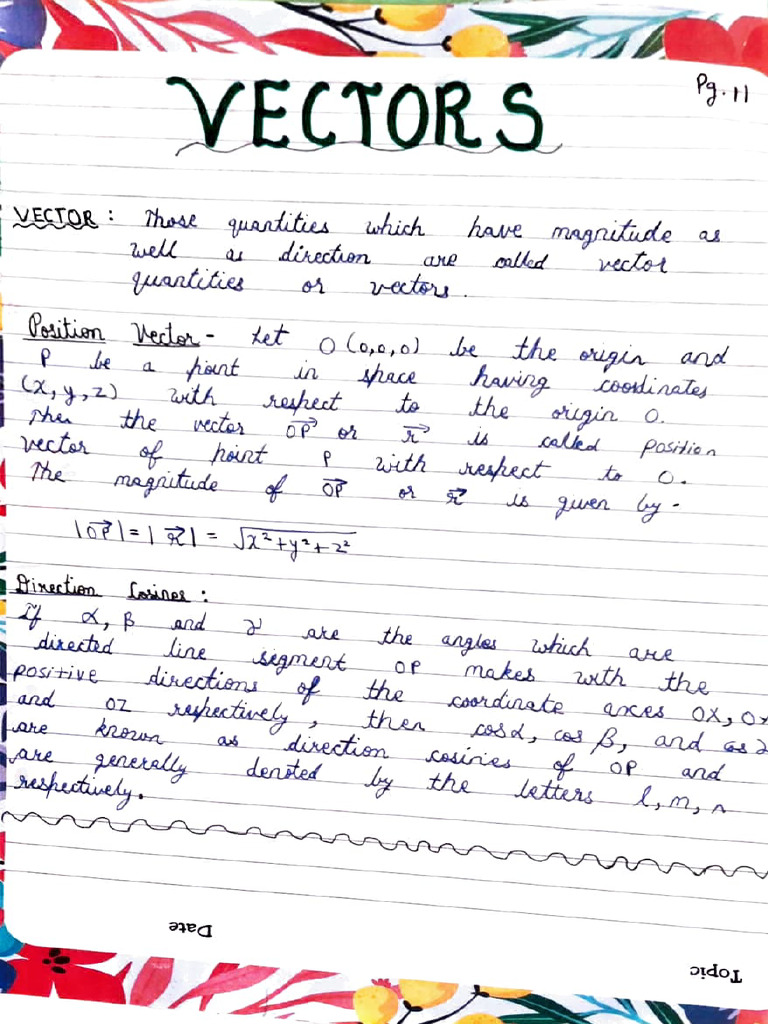 Pg. 11
VECTORS
VECTOR : Those quantities which have magnitude as
well as direction are called vector
quantities or vectors.
Position Vector - Let O (0,0,0) be the origin and
P be a point in space having coordinates
(x, y, z) with respect to the origin O.
Then the vector OP⃗ or r⃗ is called position
vector of point P with respect to O.
The magnitude of OP⃗ or r⃗ is given by -
|OP⃗| = |r⃗| = √x²+y²+z²
Direction Cosines :
If α, β and γ are the angles which are
directed line segment OP makes with the
positive directions of the coordinate axes OX, OY
and OZ respectively, then cosα, cos β, and cos γ
are known as direction cosines of OP and
are generally denoted by the letters l, m, n
respectively.
Date
Topic